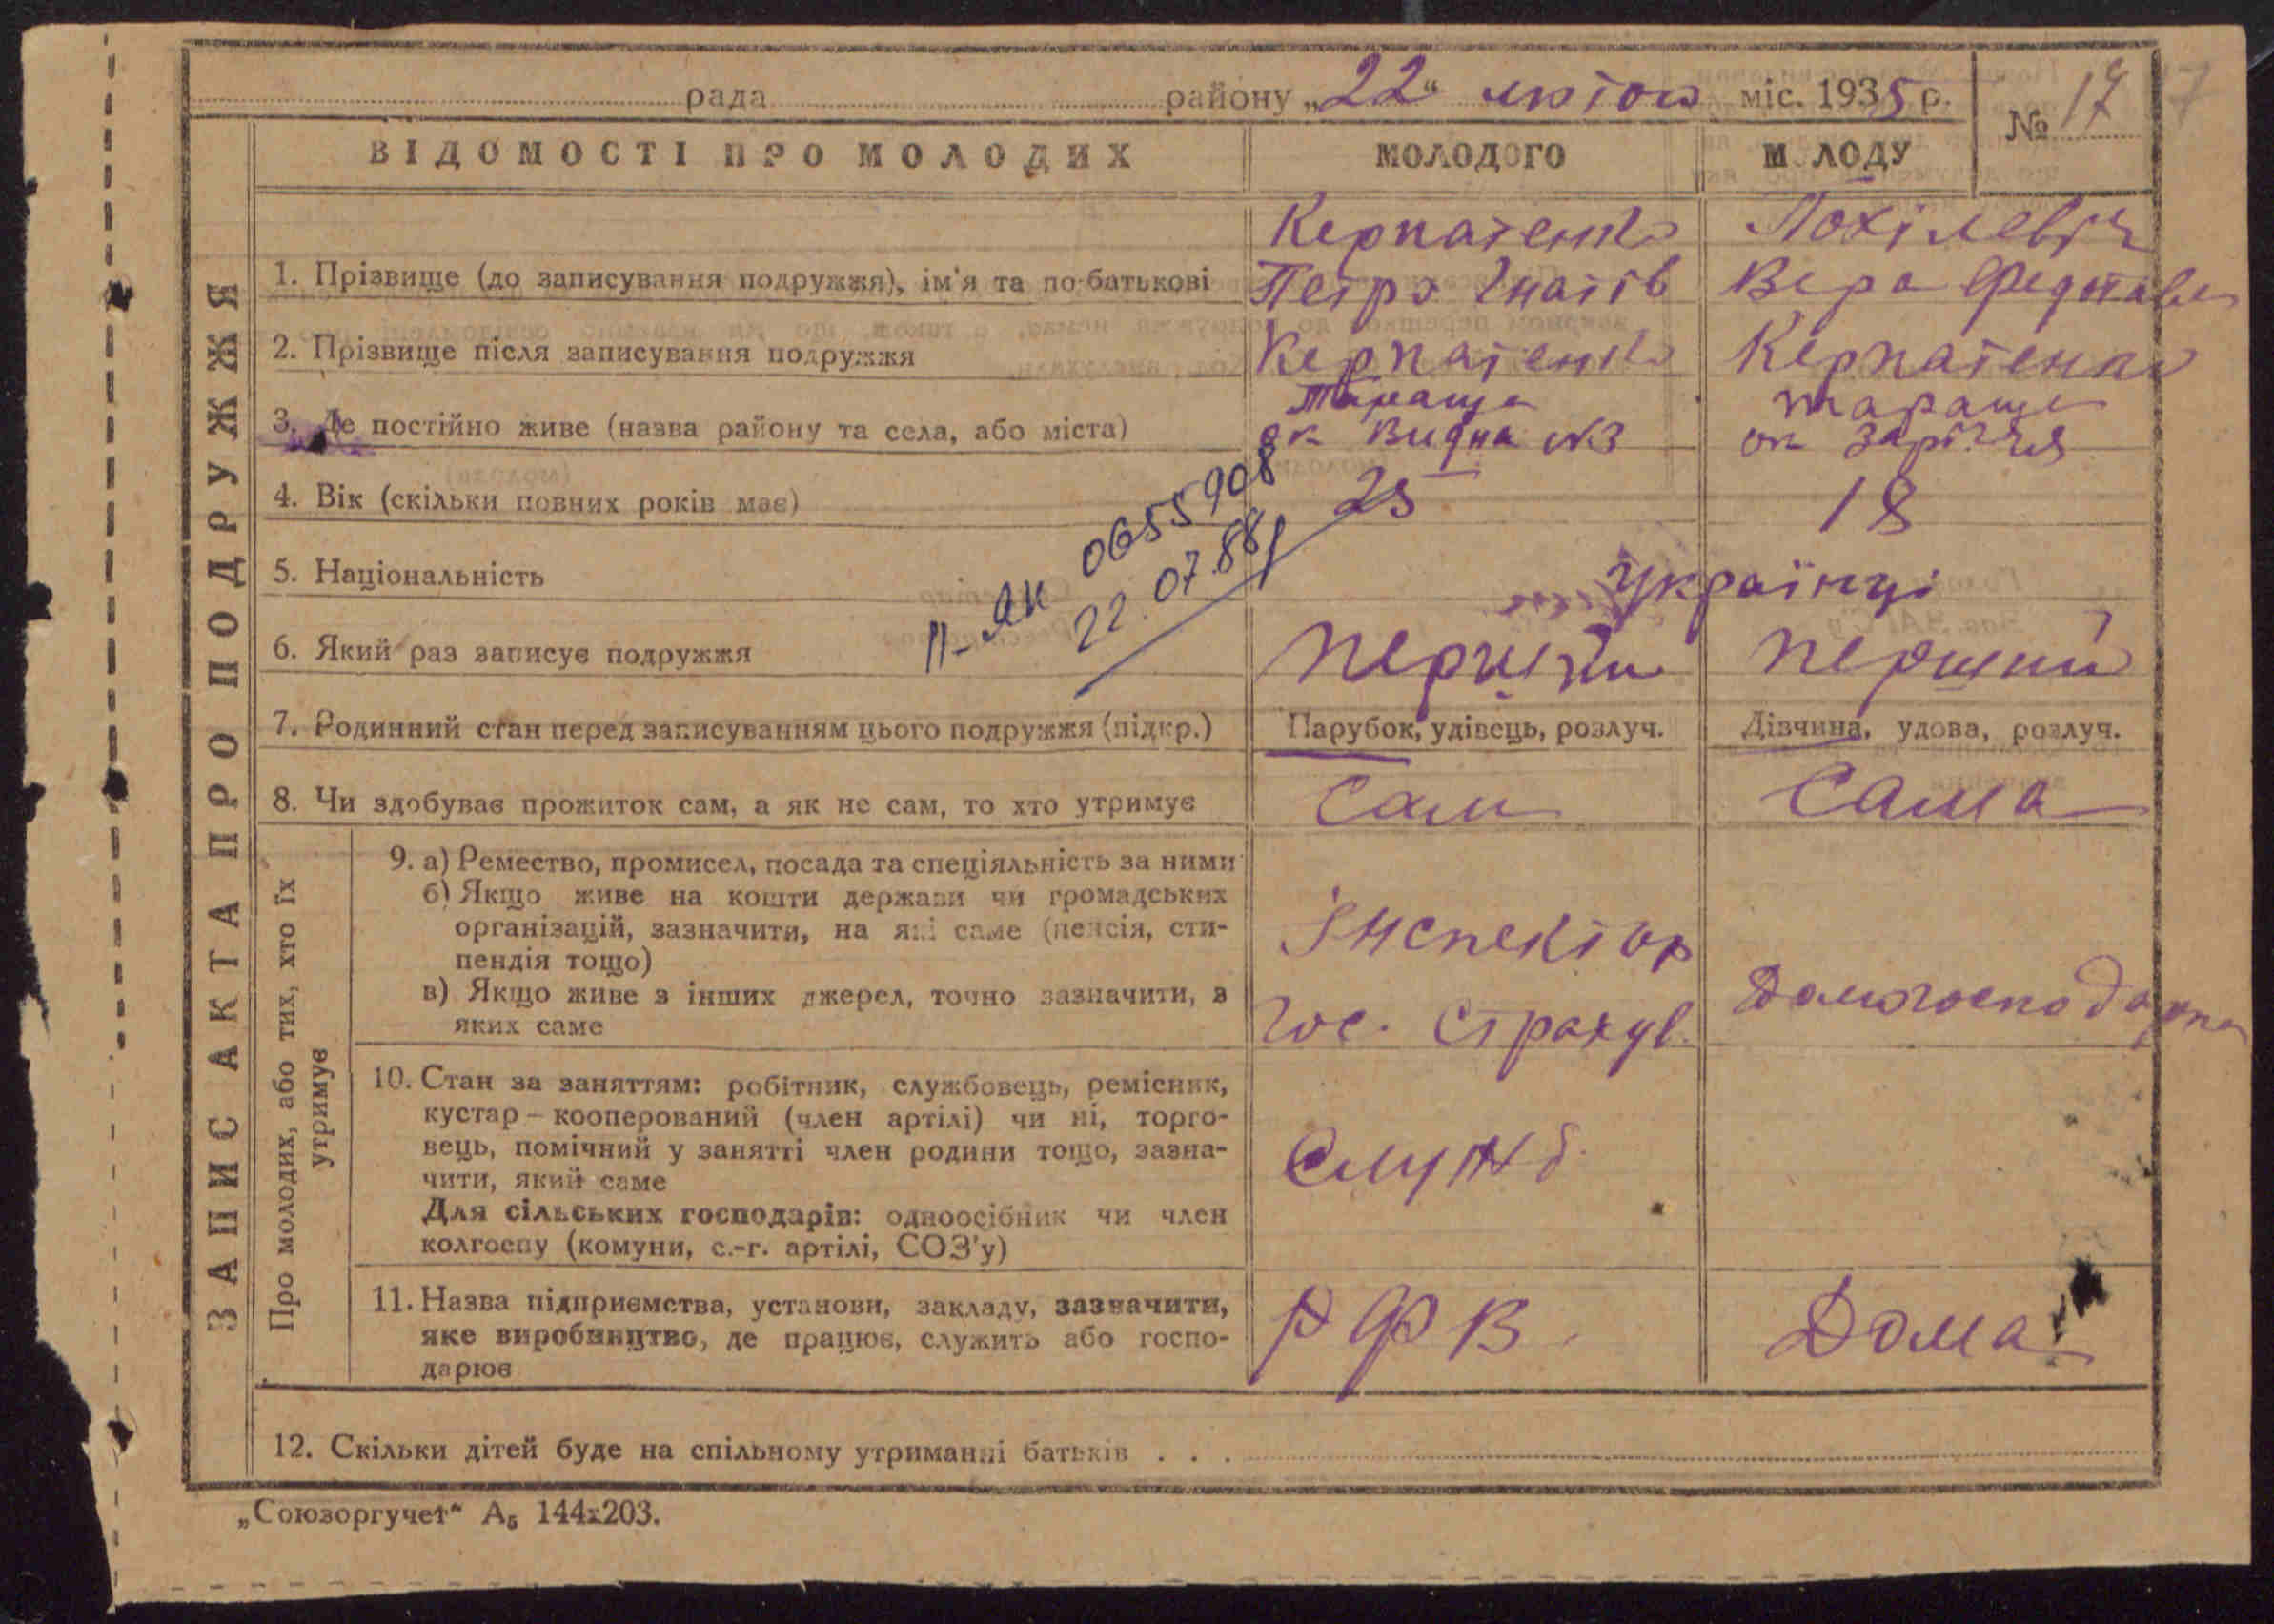 рада району „22“ лютого міс. 1935 р. № 17
ЗАПИС АКТА ПРО ПОДРУЖЖЯ
ВІДОМОСТІ ПРО МОЛОДИХ МОЛОДОГО М ЛОДУ
Керпатенко Похілевіч
1. Прізвище (до записування подружжя), ім'я та по-батькові Петро Гнатів Вера
2. Прізвище після записування подружжя Керпатенко Керпатенко
Тараща Тараща
3. Де постійно живе (назва району та села, або міста) ок Видна №3 ок Заріччя
4. Вік (скільки повних років має) 25 18
5. Національність українці
6. Який раз записує подружжя перший перший
II-ЯК 0655908
22.07.88
7. Родинний стан перед записуванням цього подружжя (підкр.) Парубок, удівець, розлуч. Дівчина, удова, розлуч.
8. Чи здобуває прожиток сам, а як не сам, то хто утримує Сам Сама
Про молодих, або тих, хто їх утримує
9. а) Ремество, промисел, посада та спеціяльність за ними
б) Якщо живе на кошти держави чи громадських
організацій, зазначити, на які саме (пенсія, сти-
пендія тощо)
в) Якщо живе з інших джерел, точно зазначити, з
яких саме
Інспектор
Гос. Страхув. Домогосподарка
10. Стан за заняттям: робітник, службовець, ремісник,
кустар – кооперований (член артілі) чи ні, торго-
вець, помічний у занятті член родини тощо, зазна-
чити, який саме
Для сільських господарів: одноосібник чи член
колгоспу (комуни, с.-г. артілі, СОЗ'у)
Служб.
11. Назва підприємства, установи, закладу, зазначити,
яке виробництво, де працює, служить або госпо-
дарює
РФВ Дома
12. Скільки дітей буде на спільному утриманні батьків . . .
„Союзоргучет“ А5 144х203.